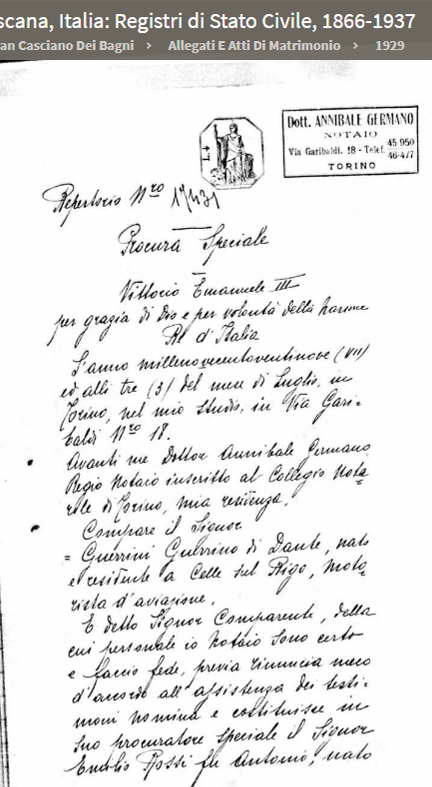 scana, Italia: Registri di Stato Civile, 1866-1937
an Casciano Dei Bagni > Allegati E Atti Di Matrimonio > 1929
L. 4
Dott. ANNIBALE GERMANO
NOTAIO
Via Garibaldi, 18 - Telef. 45-950
46-477
TORINO
Repertorio Nro
Procura Speciale
Vittorio Emanuele III
per grazia di Dio e per volontà della Nazione
Re d'Italia
L'anno millenovecentoventinove (VII)
ed alli tre (3) del mese di Luglio, in
Torino, nel mio studio, in Via Gari-
baldi Nro 18.
Avanti me Dottor Annibale Germano,
Regio Notaio inscritto al Collegio Nota-
rile di Torino, mia residenza,
Compare il Signor
= Guerrini Guerrino di Dante, nato
e residente a Celle sul Rigo, moto-
rista d'aviazione.
E detto Signor Comparente, della
cui personale io Notaio sono certo
e faccio fede, previa rinuncia meco
d'accordo all'assistenza dei testi-
moni nomina e costituisce in
suo procuratore speciale il Signor
Emilio Rossi fu Antonio, nato